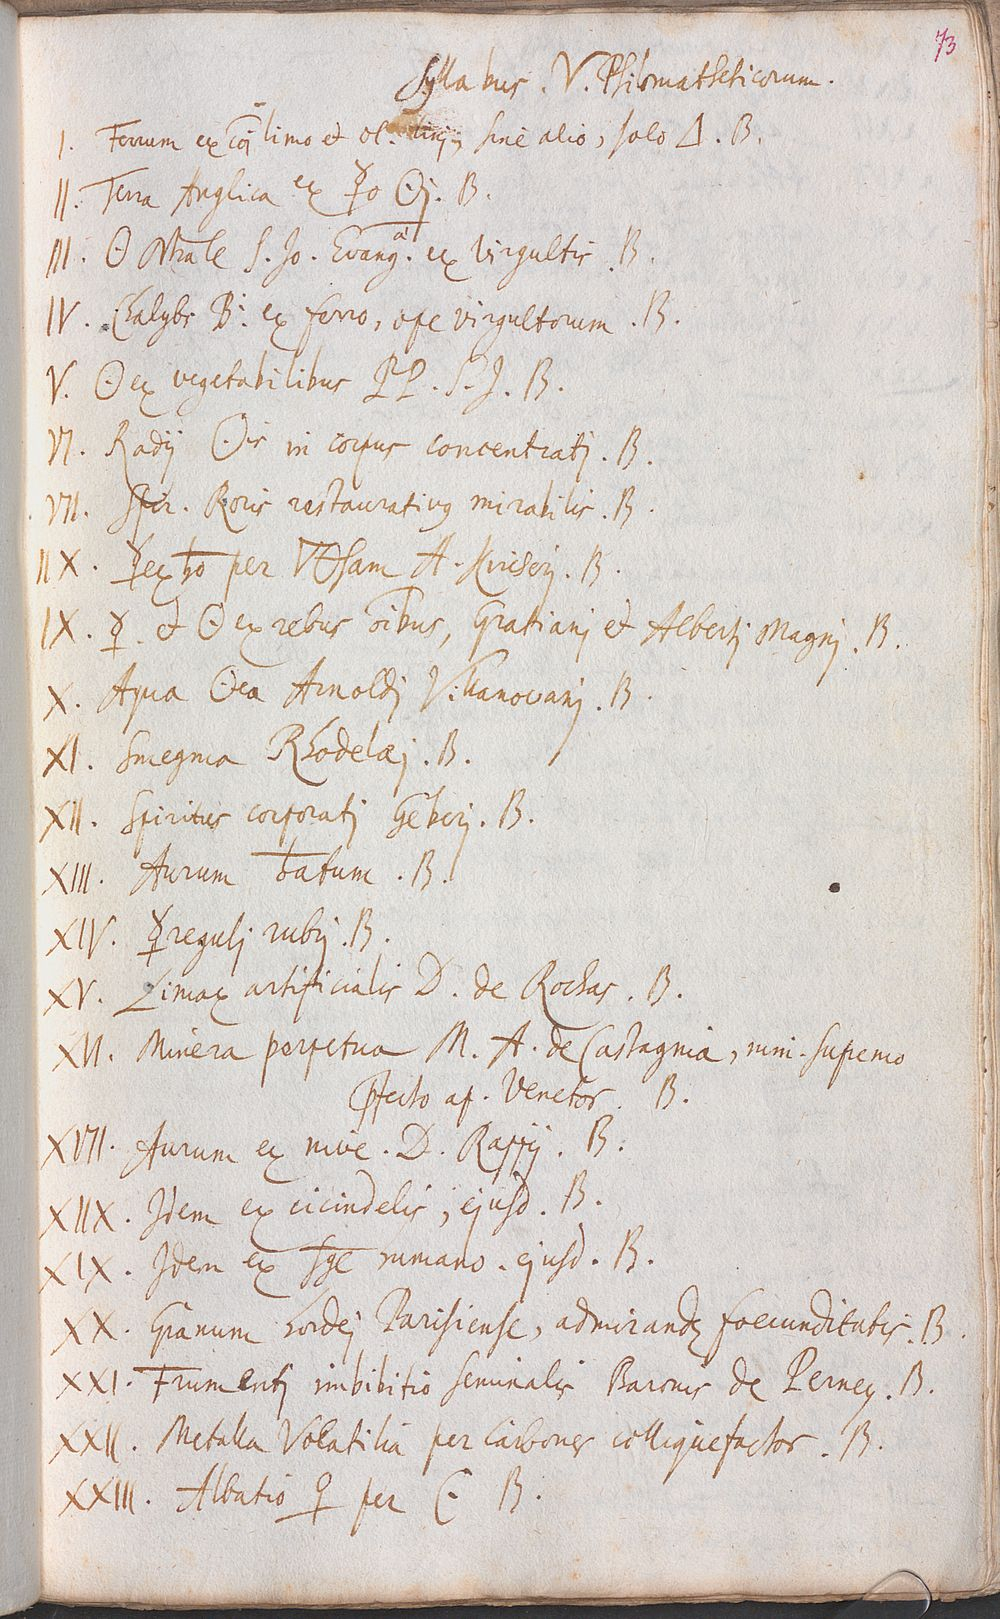 73
Syllabus. V. Philomatheticorum.
I. Ferrum ex limo et ol. linj, sine alio, solo △. B.
II. Terra Anglica ex ☿o ☉j. B.
III. ☉ S. Jo. Evang. ex virgultis. B.
IV. Chalybs B. ex ferro, ope virgultorum. B.
V. ☉ ex vegetabilibus PP. S. J. B.
VI. Radij ☉is in corpus concentratj. B.
VII. Spir. Roris restaurativus mirabilis. B.
IIX. ☿ ex ♄o per A. B.
IX. ☿ et ☉ ex rebus oibus, Gratianj et Albertj Magnj. B.
X. Aqua ☉ea Arnoldj Villanovanj. B.
XI. Smegma Rhodelæj. B.
XII. Spiritus corporatj Geberj. B.
XIII. Aurum B.
XIV. ☿ regulj rubij. B.
XV. Limax artificialis D. de Rochas. B.
XVI. Minera perpetua M. A. de Castagnia, min. supremo
Pfecto ap. Venetos. B.
XVII. Aurum ex nive. D. B.
XIIX. Idem ex cicindelis, ejusd. B.
XIX. Idem ex sge humano. ejusd. B.
XX. Granum hordej Parisiense, admirandæ foecunditatis. B.
XXI. Frumentj imbibitio seminalis Baronis de Perney. B.
XXII. Metalla Volatilia per carbones colliquefactos. B.
XXIII. Albatio ♀ per ☾. B.